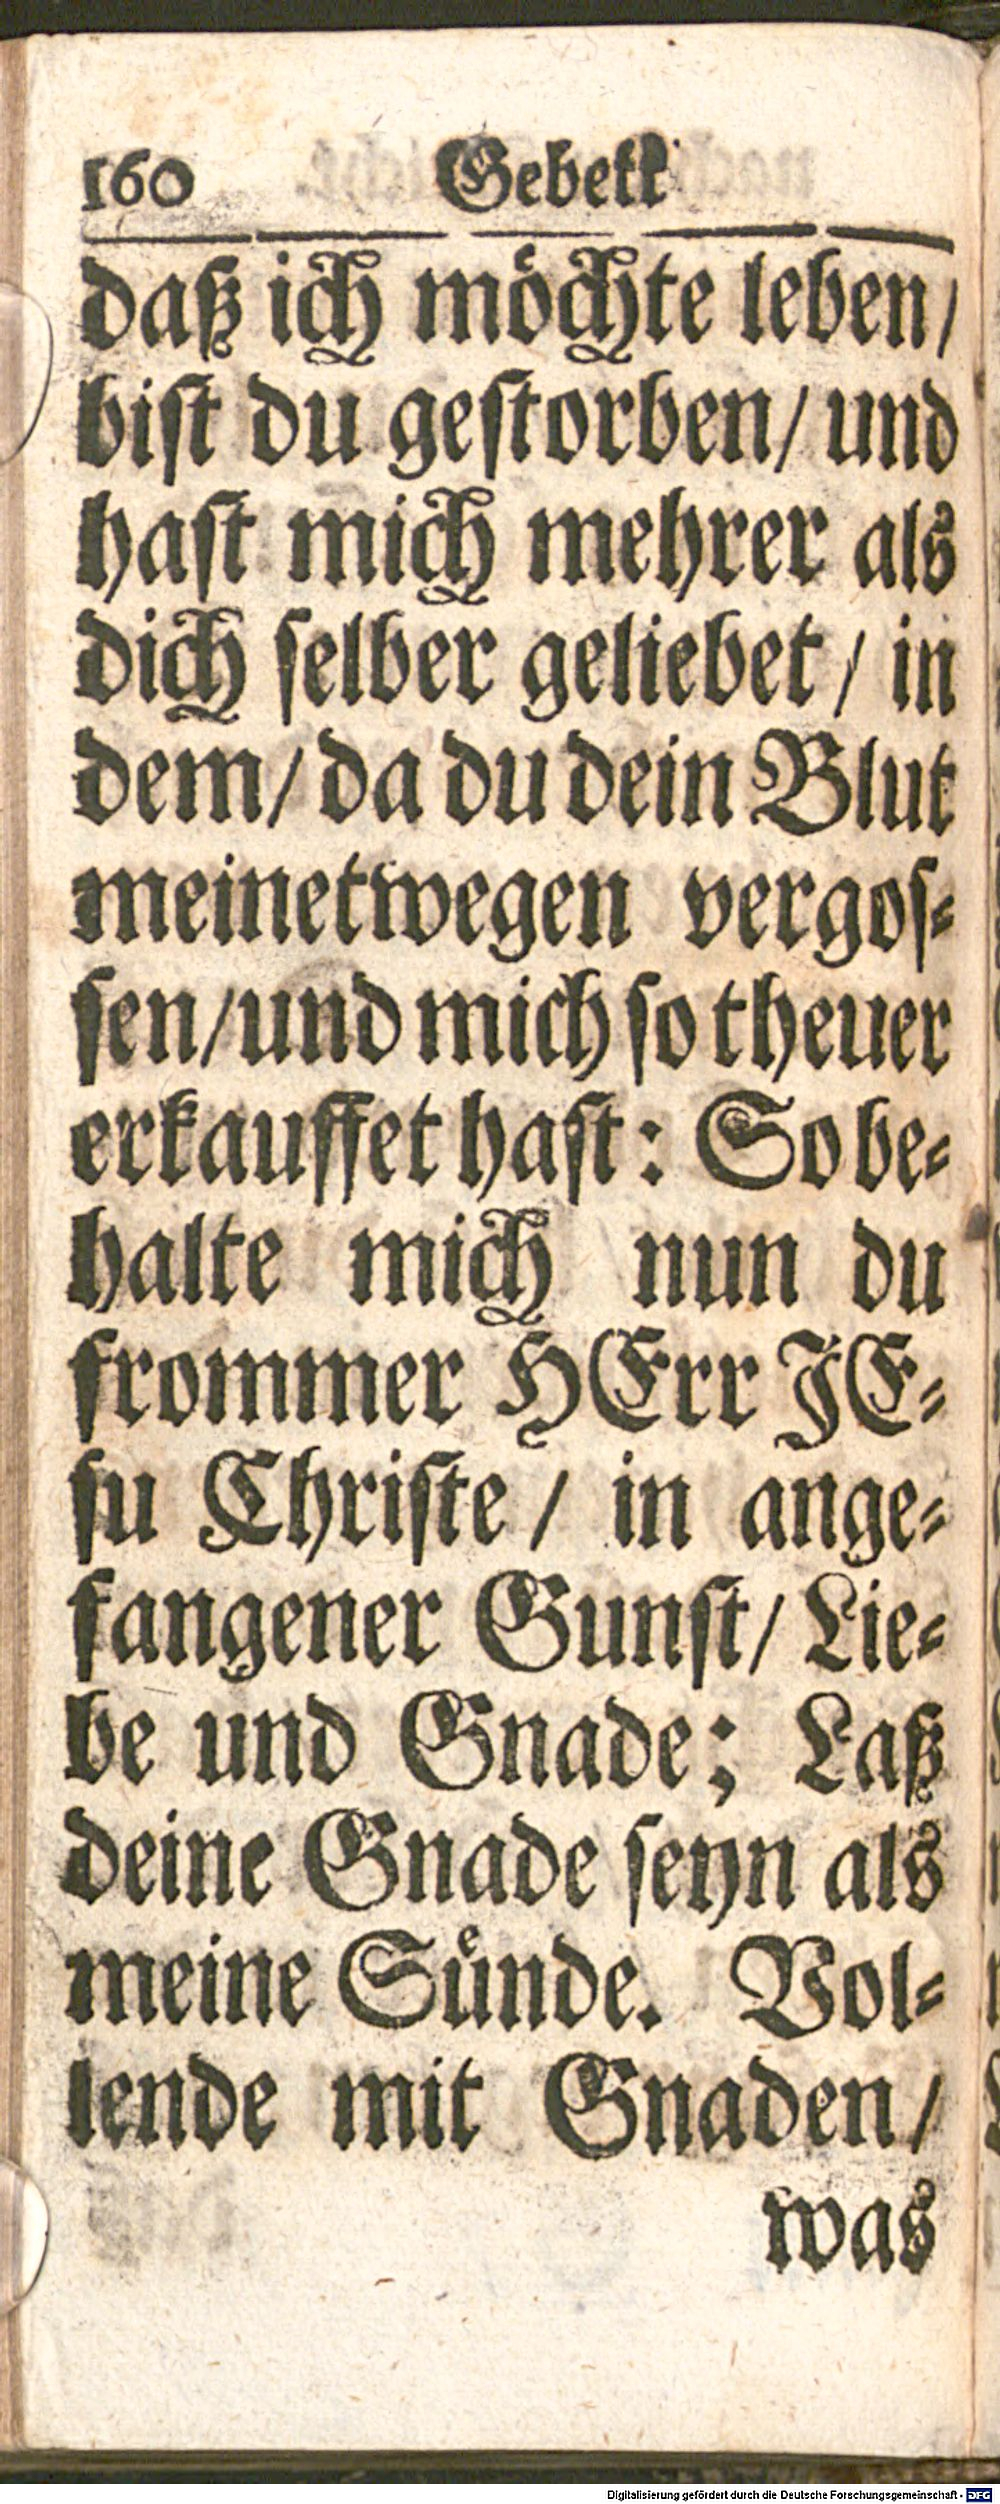 160 Gebett
daß ich möchte leben/
bist du gestorben/ und
hast mich mehrer als
dich selber geliebet/ in
dem/ da du dein Blut
meinetwegen vergos-
sen/und mich so theuer
erkauffet hast: So be-
halte mich nun du
frommer HErr JE-
su Christe/ in ange-
fangener Gunst/ Lie-
be und Gnade; Laß
deine Gnade seyn als
meine Sünde. Vol-
lende mit Gnaden/
was
Digitalisierung gefördert durch die Deutsche Forschungsgemeinschaft - DFG